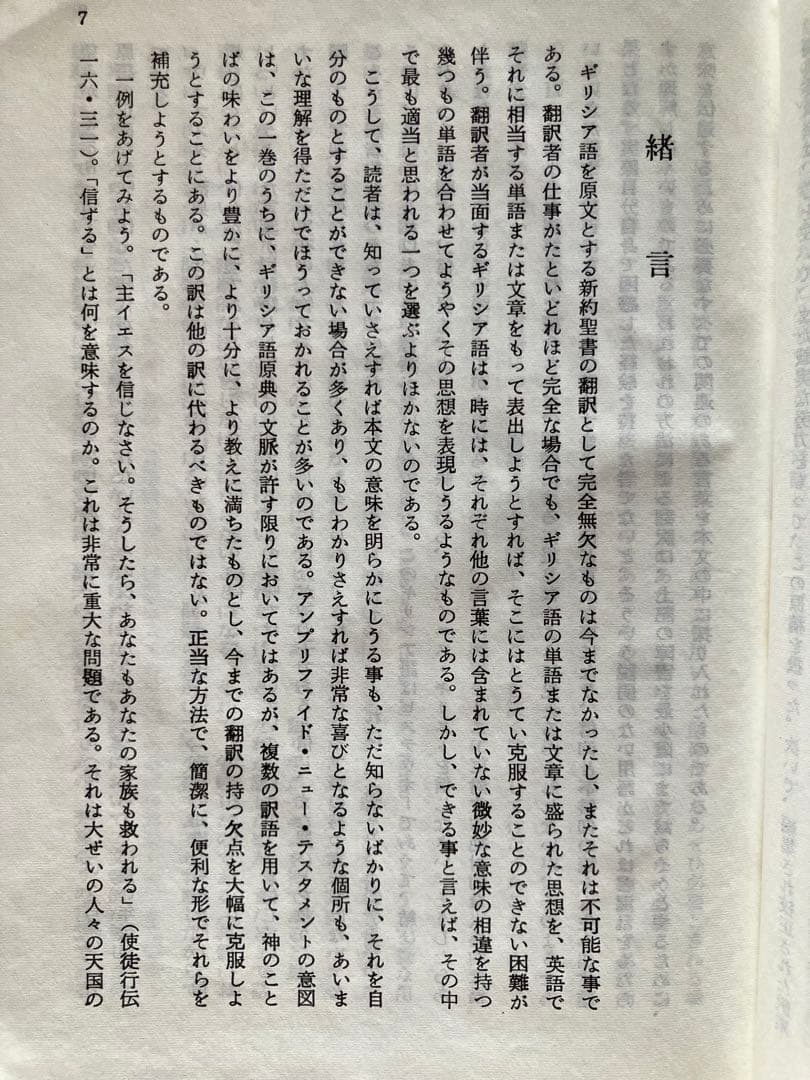 7
緒言
ギリシア語を原文とする新約聖書の翻訳として完全無欠なものは今までなかったし、またそれは不可能な事で
ある。翻訳者の仕事がたといどれほど完全な場合でも、ギリシア語の単語または文章に盛られた思想を、英語で
それに相当する単語または文章をもって表出しようとすれば、そこにはとうてい克服することのできない困難が
伴う。翻訳者が当面するギリシア語は、時には、それぞれ他の言葉には含まれていない微妙な意味の相違を持つ
幾つもの単語を合わせてようやくその思想を表現しうるようなものである。しかし、できる事と言えば、その中
で最も適当と思われる一つを選ぶよりほかないのである。
こうして、読者は、知っていさえすれば本文の意味を明らかにしうる事も、ただ知らないばかりに、それを自
分のものとすることができない場合が多くあり、もしわかりさえすれば非常な喜びとなるような個所も、あいま
いな理解を得ただけでほうっておかれることが多いのである。アンプリファイド・ニュー・テスタメントの意図
は、この一巻のうちに、ギリシア語原典の文脈が許す限りにおいてではあるが、複数の訳語を用いて、神のこと
ばの味わいをより豊かに、より十分に、より教えに満ちたものとし、今までの翻訳の持つ欠点を大幅に克服しよ
うとすることにある。この訳は他の訳に代わるべきものではない。正当な方法で、簡潔に、便利な形でそれらを
補充しようとするものである。
一例をあげてみよう。「主イエスを信じなさい。そうしたら、あなたもあなたの家族も救われる」（使徒行伝
一六・三一）。「信ずる」とは何を意味するのか。これは非常に重大な問題である。それは大ぜいの人々の天国の